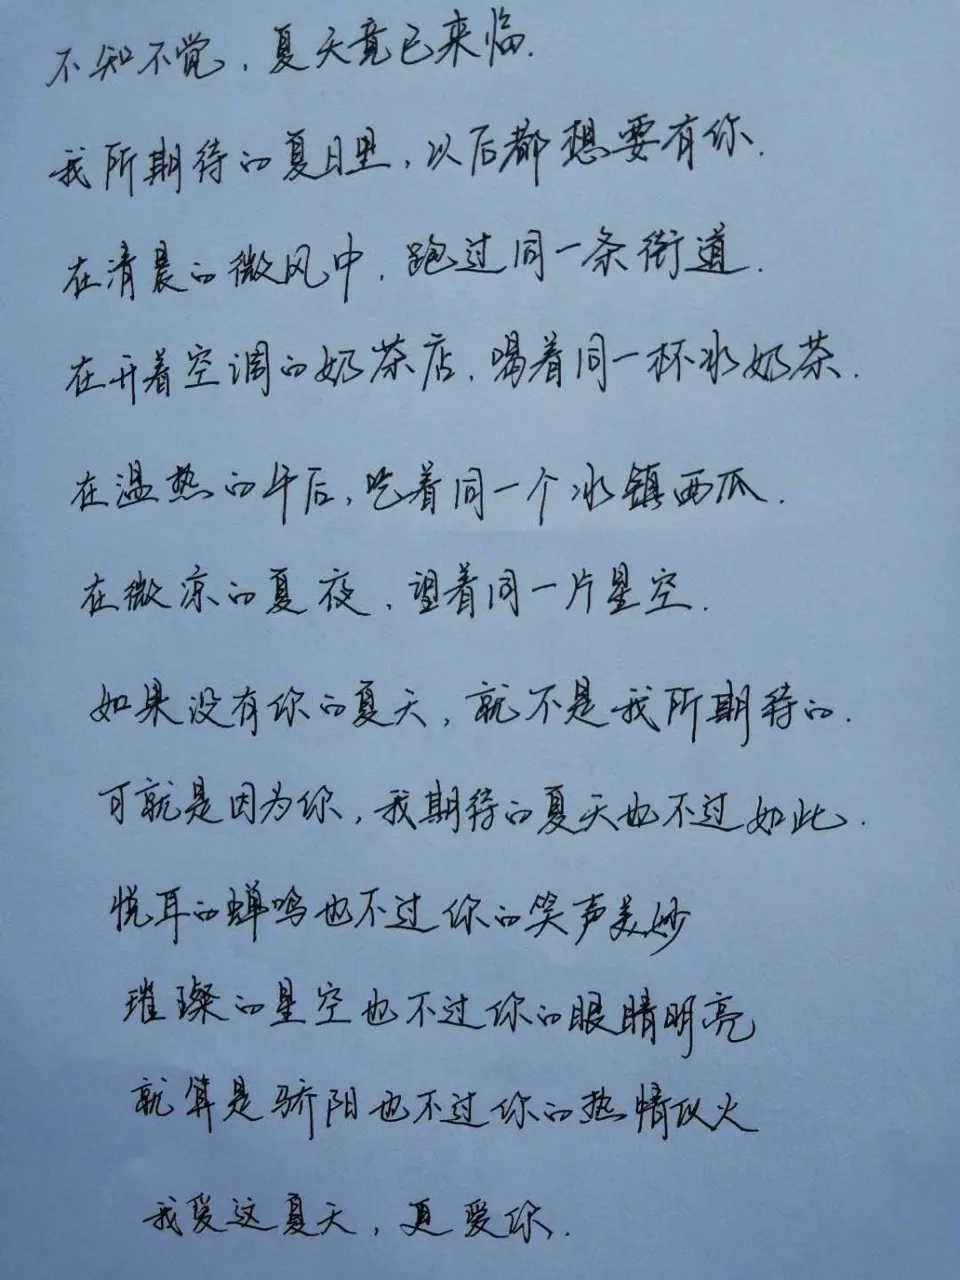 不知不觉,夏天竟已来临.
我所期待的夏日里,以后都想要有你.
在清晨的微风中,跑过同一条街道.
在开着空调的奶茶店,喝着同一杯冰奶茶.
在温热的午后,吃着同一个冰镇西瓜.
在微凉的夏夜,望着同一片星空.
如果没有你的夏天,就不是我所期待的.
可就是因为你,我期待的夏天也不过如此.
悦耳的蝉鸣也不过你的笑声美妙
璀璨的星空也不过你的眼睛明亮
就算是骄阳也不过你的热情似火
我爱这夏天,更爱你.